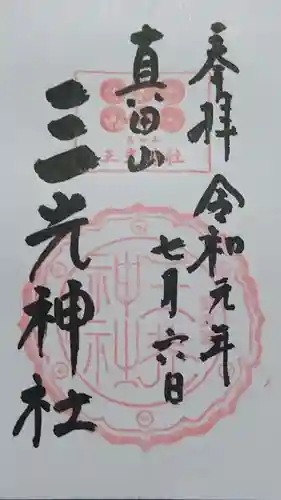 奉拝
令和元年
七月六日
真田山
三光神社